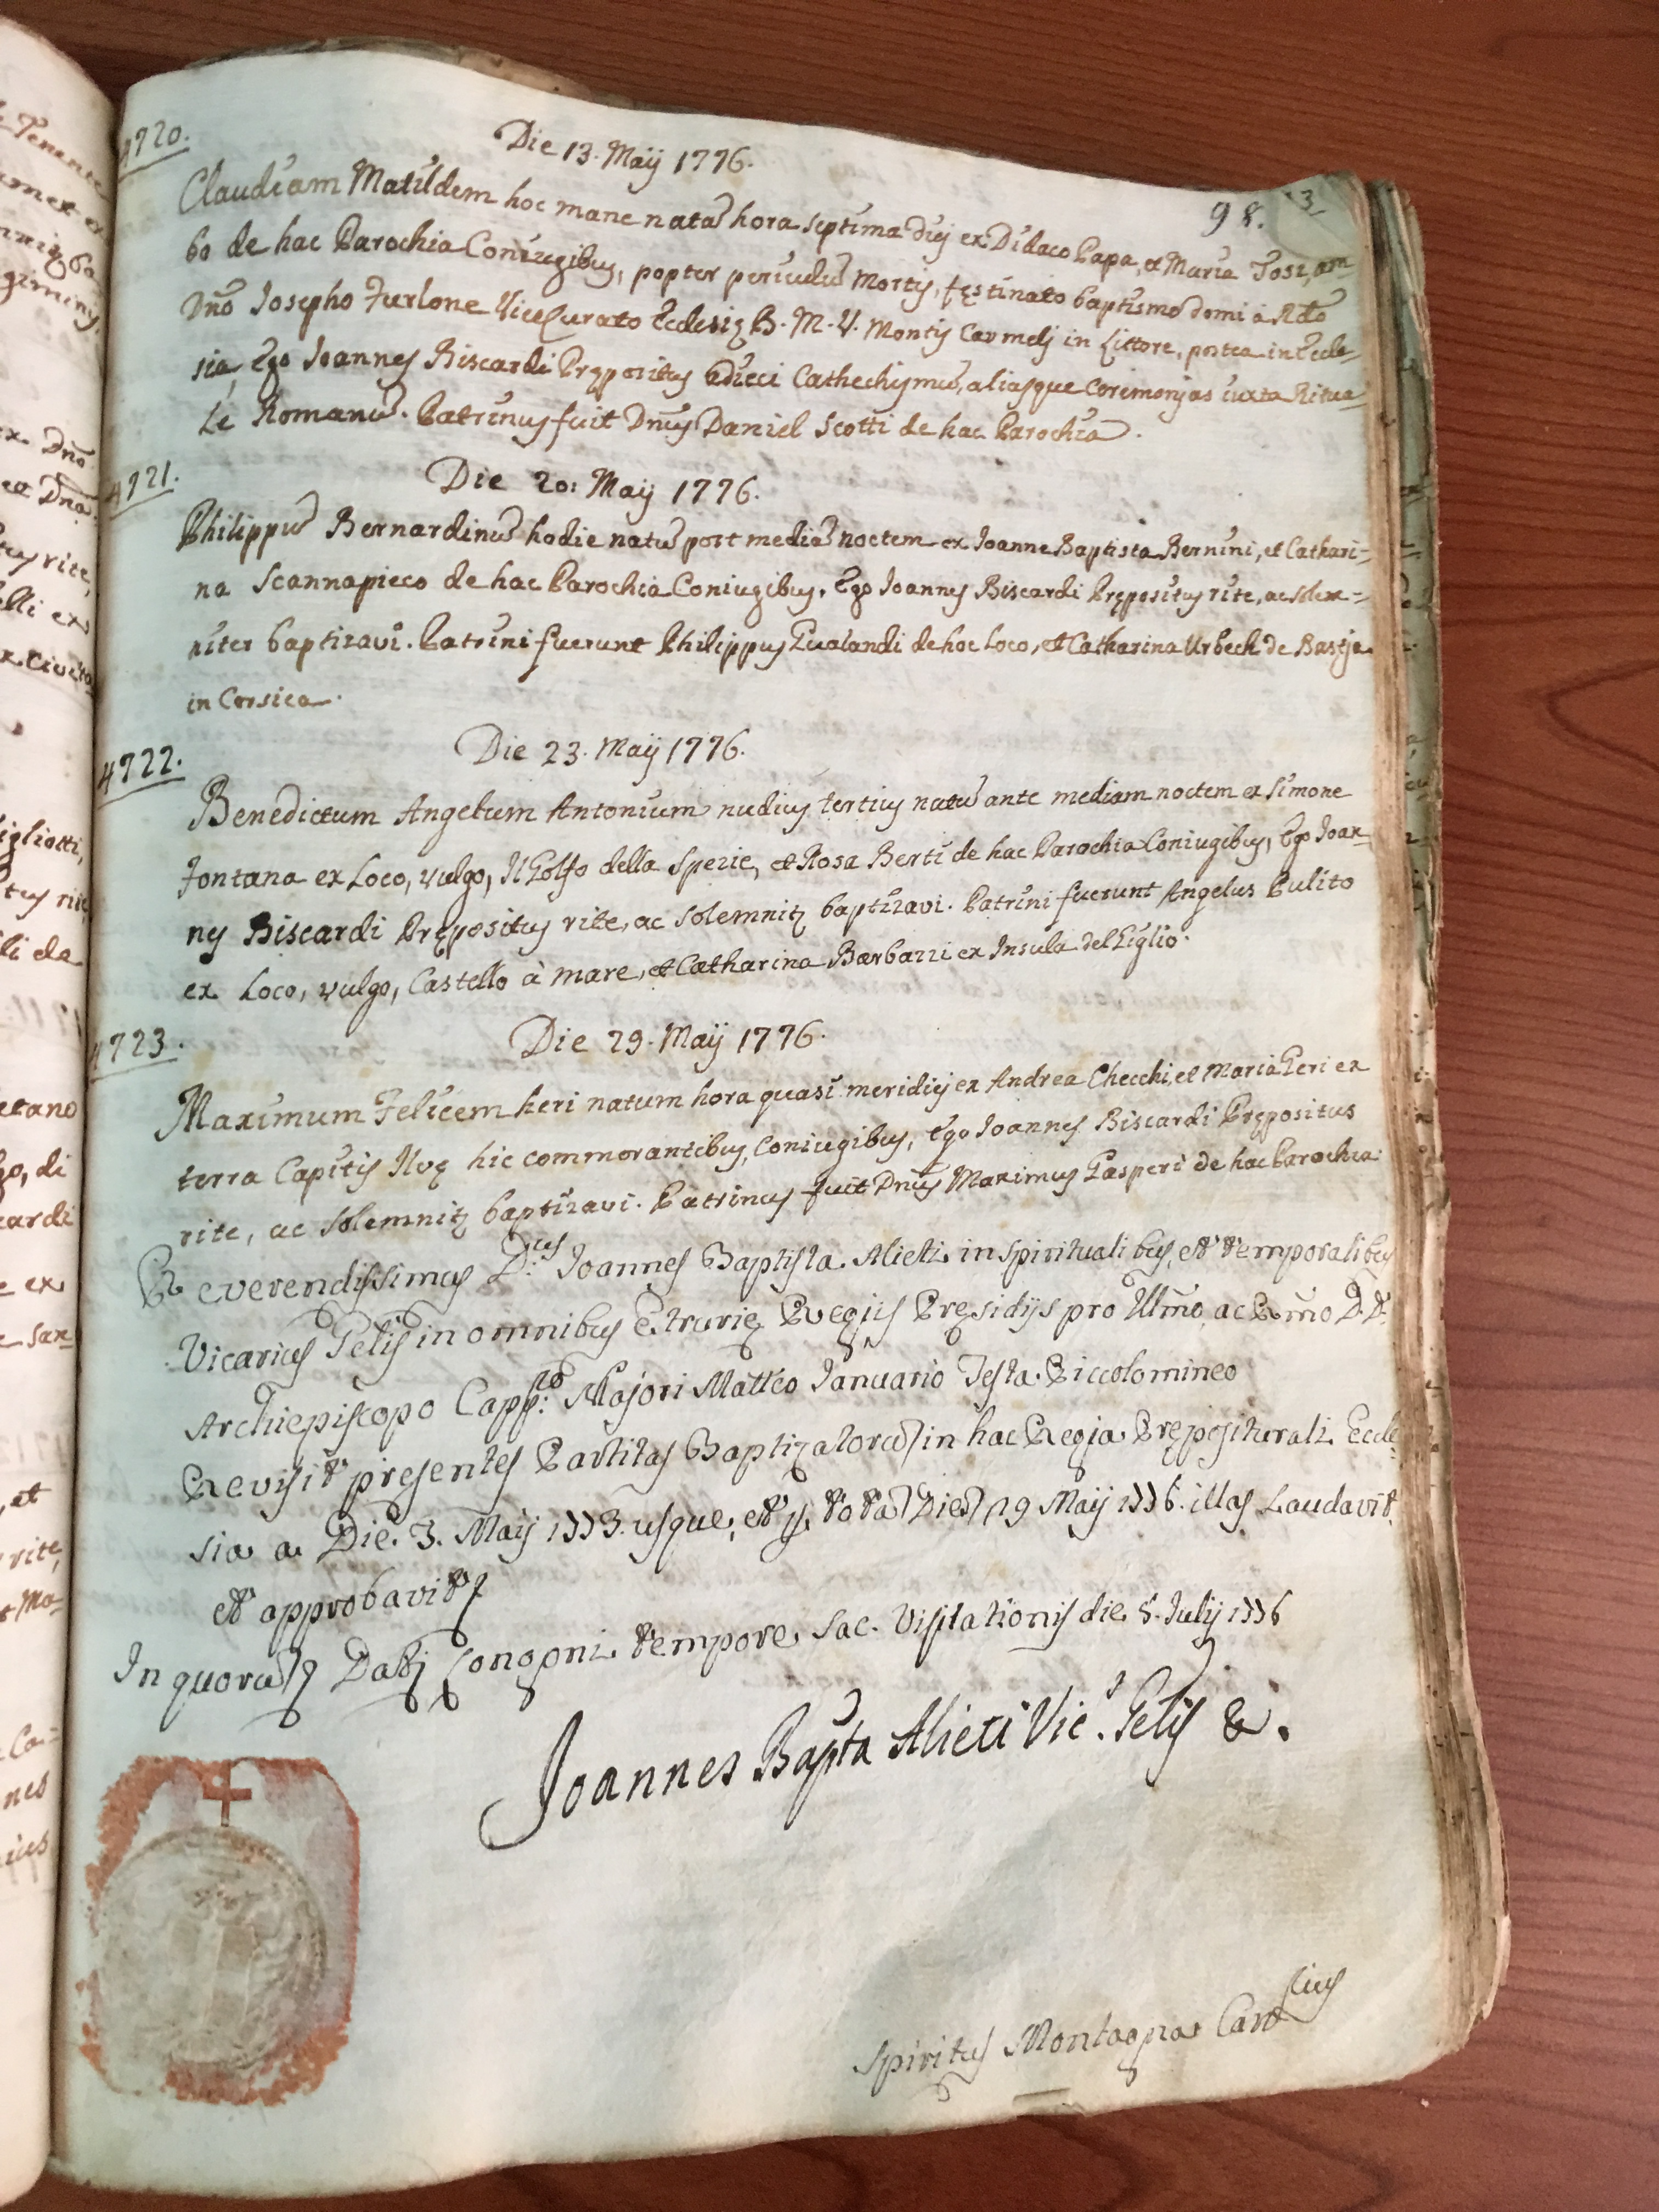 98.
4720.
Die 13. Maÿ 1776.
Claudiam Matildem hoc mane natã hora septima diej ex Didaco Papa, et Maria Tosi, am
bo de hac Parochia Coniugibus, popter periculũ Mortis, festinato baptismo domi à Rdo
Dño Josepho Furlone ViceCurato Ecclesię B. M. V. Montis Carmelj in Littore, postea in Eccle-
sia, Ego Joannes Biscardi Prępositus adieci Cathechismũ, aliasque Ceremonjas iuxta Ritua-
le Romanũ. Patrinus fuit Dñus Daniel Scotti de hac Parochia.
4721.
Die 20: Maij 1776.
Philippũ Bernardinũ hodie natũ post mediã noctem ex Joanne Baptista Bernini, et Cathari-
na Scannapieco de hac Parochia Coniugibus, Ego Joannes Biscardi Prępositus rite, ac solem-
niter baptizavi. Patrini fuerunt Philippus Gualandi de hoc Loco, et Catharina Urbech de Bastja
in Corsica.
4722.
Die 23. Maÿ 1776.
Benedictum Angelum Antonium nudius tertius natũ ante mediam noctem ex Simone
Fontana ex Loco, vulgo, Il Golfo della Spezie, et Rosa Berti de hac Parochia Coniugibus, Ego Joan-
nes Biscardi Prępositus rite, ac solemnitę baptizavi. Patrini fuerunt Angelus Pulito
ex Loco, vulgo, Castello à mare, et Catharina Barbazzi ex Insula del Giglio.
4723.
Die 29. Maÿ 1776.
Maximum Felicem heri natum hora quasi meridiej ex Andrea Checchi, et Maria Geri ex
terra Capitis Ilvę hic commorantibus, Coniugibus, Ego Joannes Biscardi Prępositus
rite, ac solemnitę baptizavi. Patrinus fuit Dñus Maximus Gasperi de hac Parochia.
Reverendissimus D.us Joannes Baptista Alieti in spiritualibus, et temporalibus
Vicarius Gelis in omnibus Etrurię Regijs Pręsidijs pro Illmo ac Rmo D. D.
Archiepiscopo Capp.no Majori Matteo Januario Testa Piccolomineo
Revisit presentes Partitas Baptizatorũ in hac Regia Pręposituralj Eccle-
sia a Die 3. Maij 1773. usque, et p. totã Diẽ 29 Maij 1776. illas Laudavit,
et approbavit
In quorũ Datj Longoni tempore Sac. Visitationis die 5. Julij 1776
Joannes Bapta Alieti Vic.s Gelis &.
Spiritus Montagna Canc.rius